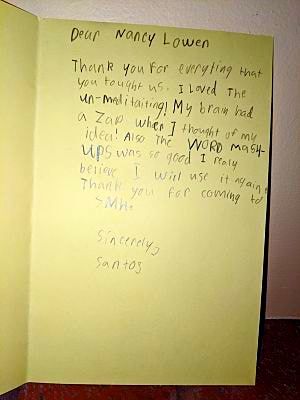 Dear Nancy Lowen
Thank you for everyting that
you tought us. I Loved The
un-meditaiting! My brain had
a Zap when I thought of my
idea! Also The WORD MaSH-
UPS was so good I realy
believe I will use it again!
Thank you for coming to
SMH.
Sincerely,
Santos